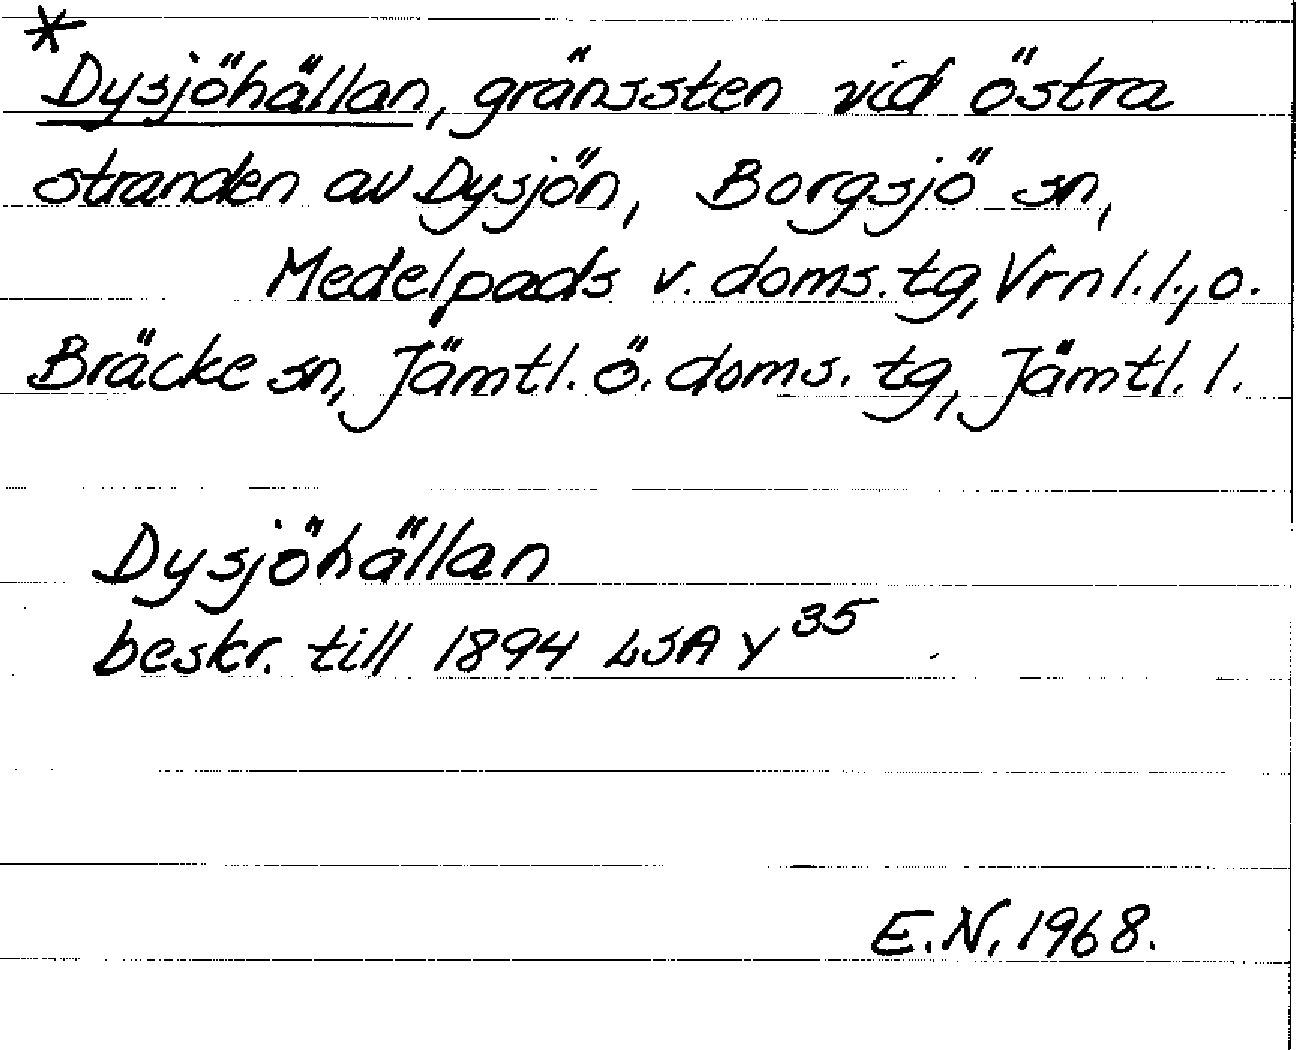 *
Dysjöhällan, gränssten vid östra
stranden av Dysjön, Borgsjö sn,
Medelpads v. doms. tg, Vrnl. l., o.
Bräcke sn, Jämtl. ö. doms. tg, Jämtl. l.
Dysjöhällan
beskr. till 1894 LSA Y35
E.N. 1968.